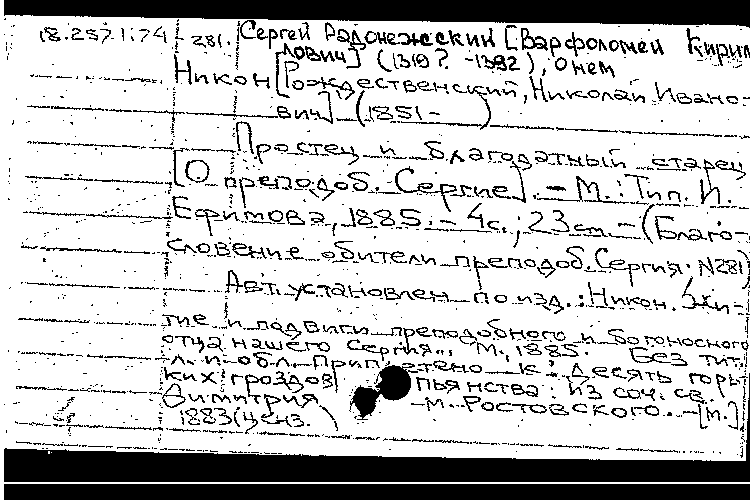 18.257.1.74 - 281. Сергей Радонежский [Варфоломей Кирил
лович] (1310? - 1392), о нем
Никон [Рождественский, Николай Ивано-
вич] (1851- )
Простец и благодатный старец
[О преподоб. Сергие]. - М.: Тип. И.
Ефимова, 1885. - 4с.; 23см. - (Благо-
словение обители преподоб. Сергия. N281)
Авт. установлен по изд.: Никон. Жи-
тие и подвиги преподобного и богоносного
отца нашего Сергия.. М., 1885. Без тит.
л. и обл. Приплетено к: Десять горь-
ких гроздов пьянства: из соч. св.
Димитрия м. Ростовского. - [М.]
1883 (ценз. )